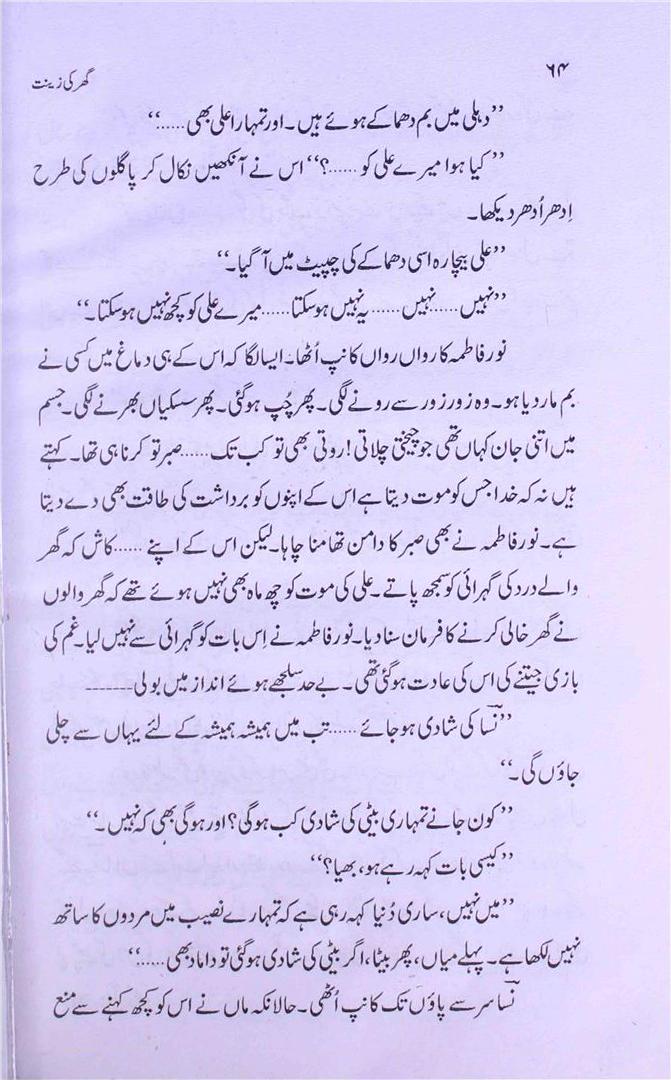 ۶۴
گھر کی زینت
’’دہلی میں بم دھماکے ہوئے ہیں۔ اور تمہارا علی بھی......‘‘
’’کیا ہوا میرے علی کو......؟‘‘ اس نے آنکھیں نکال کر پاگلوں کی طرح
اِدھر اُدھر دیکھا۔
’’علی بیچارہ اسی دھماکے کی چپیٹ میں آ گیا۔‘‘
’’نہیں......نہیں...... یہ نہیں ہو سکتا......میرے علی کو کچھ نہیں ہو سکتا۔‘‘
نور فاطمہ کا رواں رواں کانپ اُٹھا۔ ایسا لگا کہ اس کے ہی دماغ میں کسی نے
بم مار دیا ہو۔ وہ زور زور سے رونے لگی۔ پھر چُپ ہو گئی۔ پھر سسکیاں بھرنے لگی۔ جسم
میں اتنی جان کہاں تھی جو چیختی چلاتی! روتی بھی تو کب تک......صبر تو کرنا ہی تھا۔ کہتے
ہیں نہ کہ خدا جس کو موت دیتا ہے اس کے اپنوں کو برداشت کی طاقت بھی دے دیتا
ہے۔ نور فاطمہ نے بھی صبر کا دامن تھامنا چاہا۔ لیکن اس کے اپنے ......کاش کہ گھر
والے درد کی گہرائی کو سمجھ پاتے۔ علی کی موت کو چھ ماہ بھی نہیں ہوئے تھے کہ گھر والوں
نے گھر خالی کرنے کا فرمان سنا دیا۔ نور فاطمہ نے اِس بات کو گہرائی سے نہیں لیا۔ غم کی
بازی جیتنے کی اس کی عادت ہو گئی تھی۔ بے حد سلجھے ہوئے انداز میں بولی-------
’’نسا کی شادی ہو جائے ......تب میں ہمیشہ ہمیشہ کے لئے یہاں سے چلی
جاؤں گی۔‘‘
’’کون جانے تمہاری بیٹی کی شادی کب ہو گی؟ اور ہو گی بھی کہ نہیں۔‘‘
’’کیسی بات کہہ رہے ہو، بھیا؟‘‘
’’میں نہیں، ساری دُنیا کہہ رہی ہے کہ تمہارے نصیب میں مردوں کا ساتھ
نہیں لکھا ہے۔ پہلے میاں، پھر بیٹا، اگر بیٹی کی شادی ہو گئی تو داماد بھی......‘‘
نسا سر سے پاؤں تک کانپ اُٹھی۔ حالانکہ ماں نے اس کو کچھ کہنے سے منع